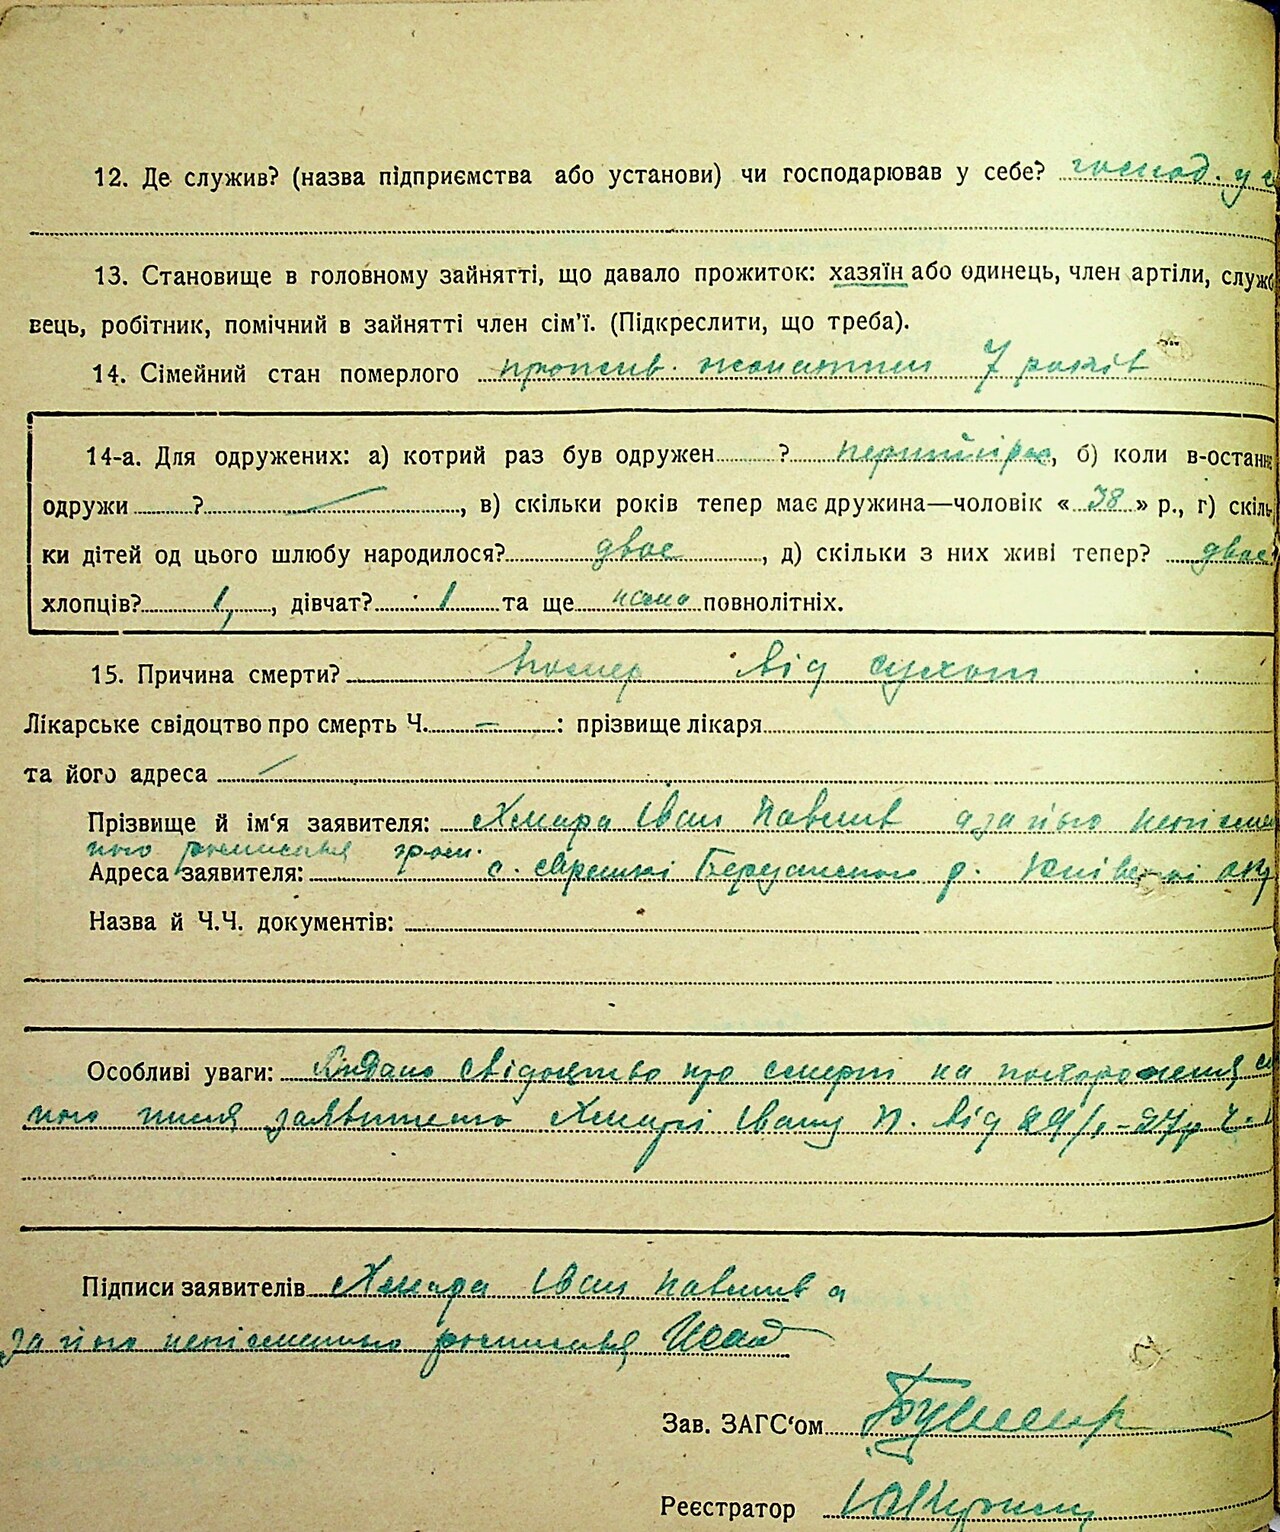 12. Де служив? (назва підприємства або установи) чи господарював у себе? господ. у с
13. Становище в головному зайнятті, що давало прожиток: хазяїн або одинець, член артіли, служб
вець, робітник, помічний в зайнятті член сім'ї. (Підкреслити, що треба).
14. Сімейний стан померлого прожив. жонатим 7 років
14-а. Для одружених: а) котрий раз був одружен ? перший раз, б) коли в-останнє
одружи ? , в) скільки років тепер має дружина—чоловік « 38 » р., г) скіль-
ки дітей од цього шлюбу народилося? двоє , д) скільки з них живі тепер? двоє
хлопців? 1, , дівчат? 1 та ще нема повнолітніх.
15. Причина смерти? Помер від сухот
Лікарське свідоцтво про смерть Ч. – : прізвище лікаря
та його адреса
Прізвище й ім'я заявителя: Хмара Іван Павлів а за його неписьмен
ного росписався гром.
Адреса заявителя: с. Ярешкі Березанського р. Київської окр
Назва й Ч.Ч. документів:
Особливі уваги: Видано свідоцтво про смерт на похоронення
заявителю Хмарі Івану П. від 29/ -27р Ч-
Підписи заявителів Хмара Іван Павлів а
за його неписьменно росписався
Зав. ЗАГС'ом
Реєстратор